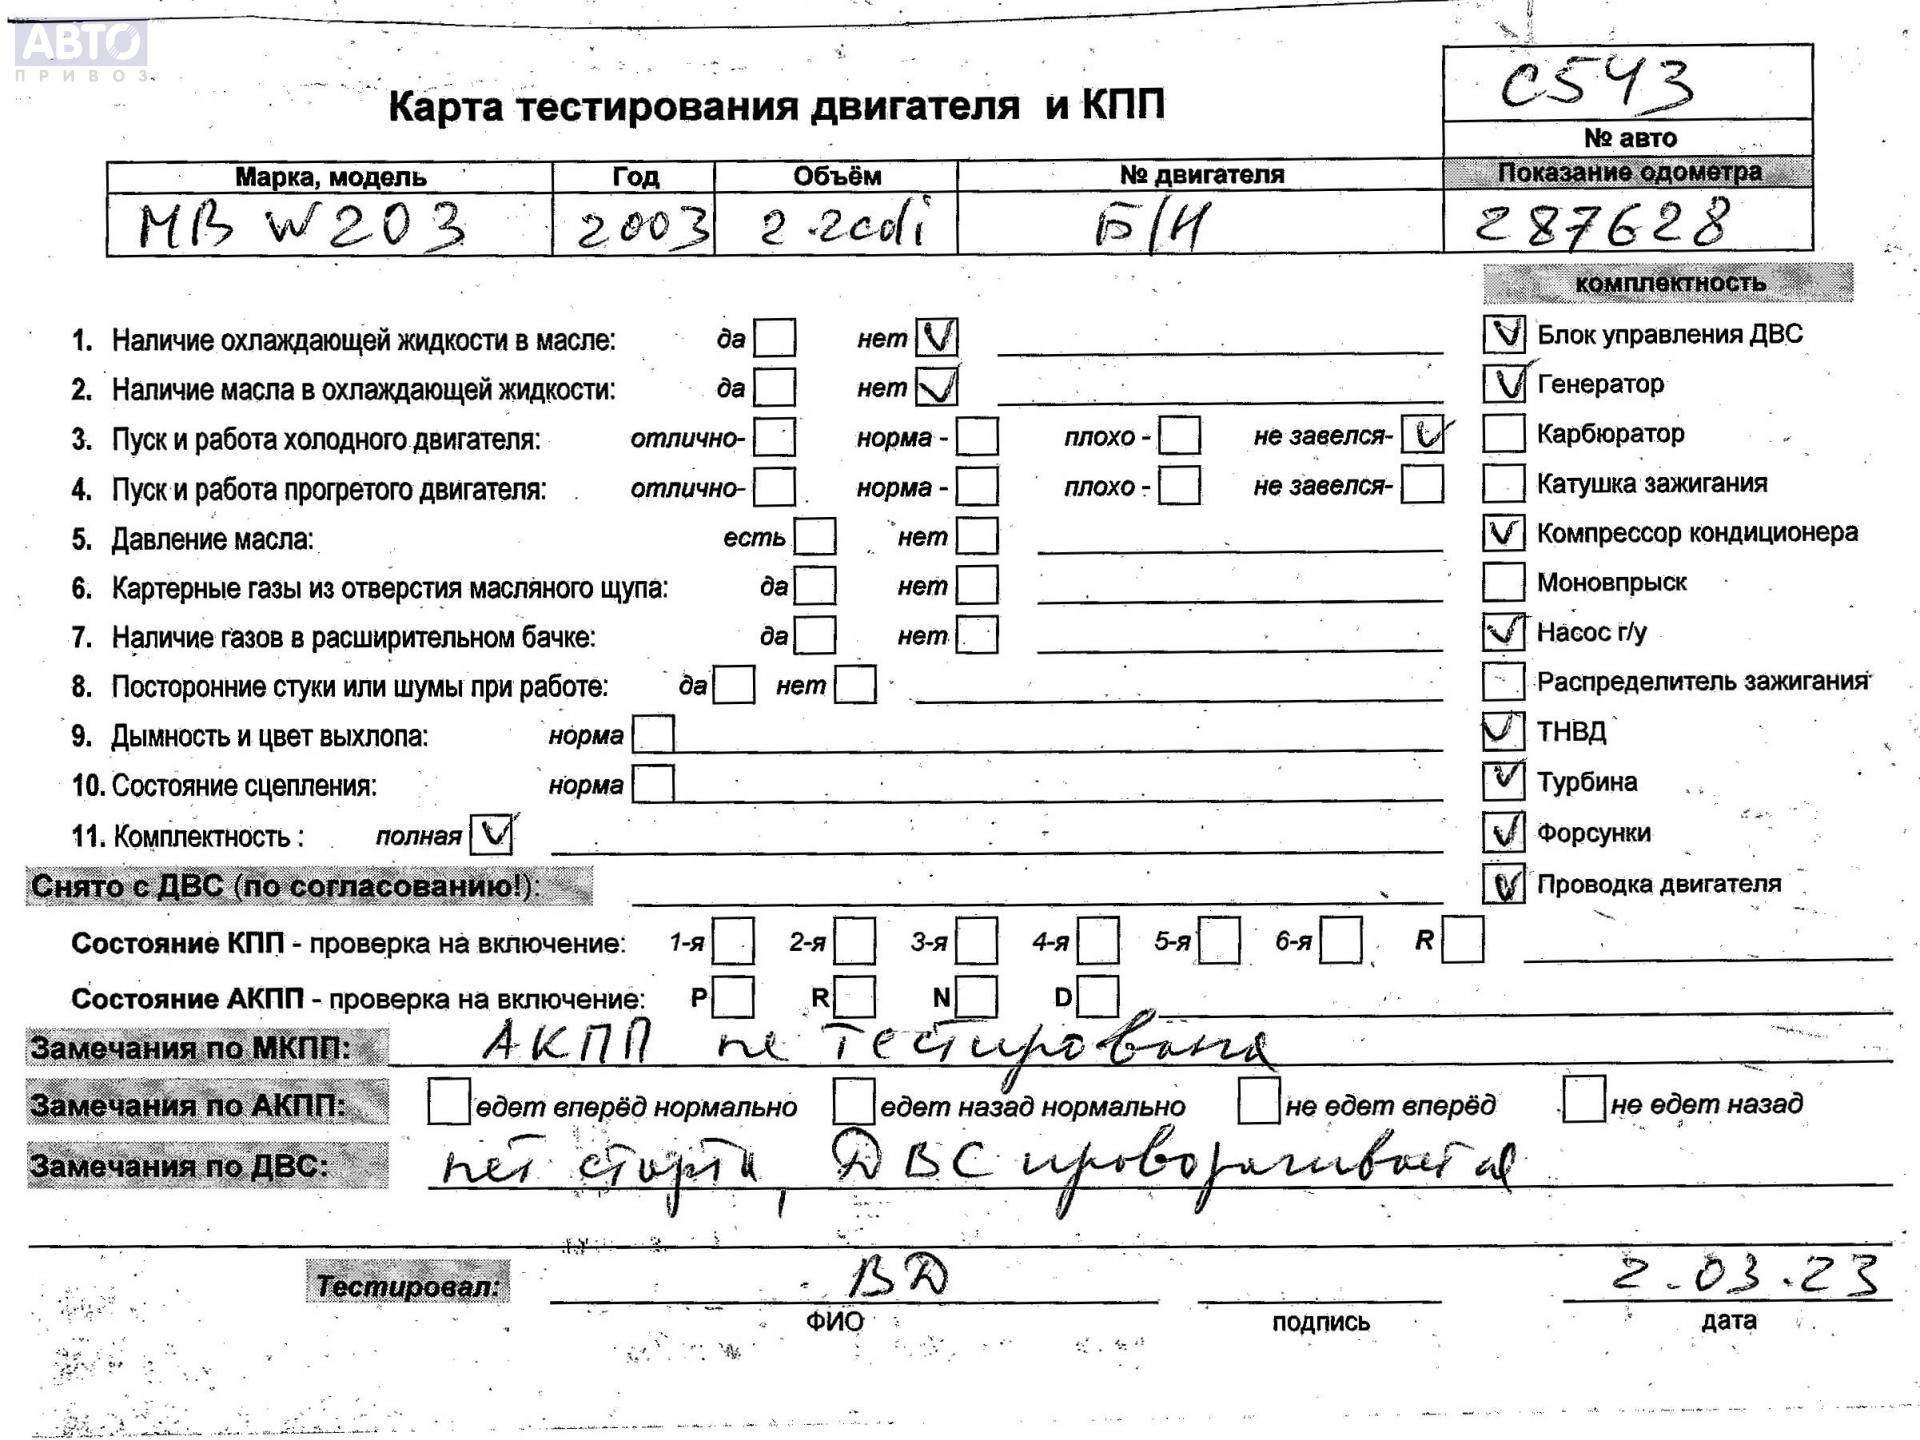 АВТО
ПРИВОЗ
С543
Карта тестирования двигателя и КПП
№ авто
Марка, модель Год Объём № двигателя Показание одометра
МВ W203 2003 2.2cdi Б/Н 287628
комплектность
1. Наличие охлаждающей жидкости в масле: да нет Блок управления ДВС
2. Наличие масла в охлаждающей жидкости: да нет Генератор
3. Пуск и работа холодного двигателя: отлично- норма - плохо - не завелся- Карбюратор
4. Пуск и работа прогретого двигателя: отлично- норма - плохо - не завелся- Катушка зажигания
5. Давление масла: есть нет Компрессор кондиционера
6. Картерные газы из отверстия масляного щупа: да нет Моновпрыск
7. Наличие газов в расширительном бачке: да нет Насос г/у
8. Посторонние стуки или шумы при работе: да нет Распределитель зажигания
9. Дымность и цвет выхлопа: норма ТНВД
10. Состояние сцепления: норма Турбина
11. Комплектность : полная Форсунки
Снято с ДВС (по согласованию!): Проводка двигателя
Состояние КПП - проверка на включение: 1-я 2-я 3-я 4-я 5-я 6-я R
Состояние АКПП - проверка на включение: P R N D
Замечания по МКПП: АКПП не тестирована
Замечания по АКПП: едет вперёд нормально едет назад нормально не едет вперёд не едет назад
Замечания по ДВС: нет старта, ДВС проворачивается
Тестировал: ВД 2.03.23
ФИО подпись дата